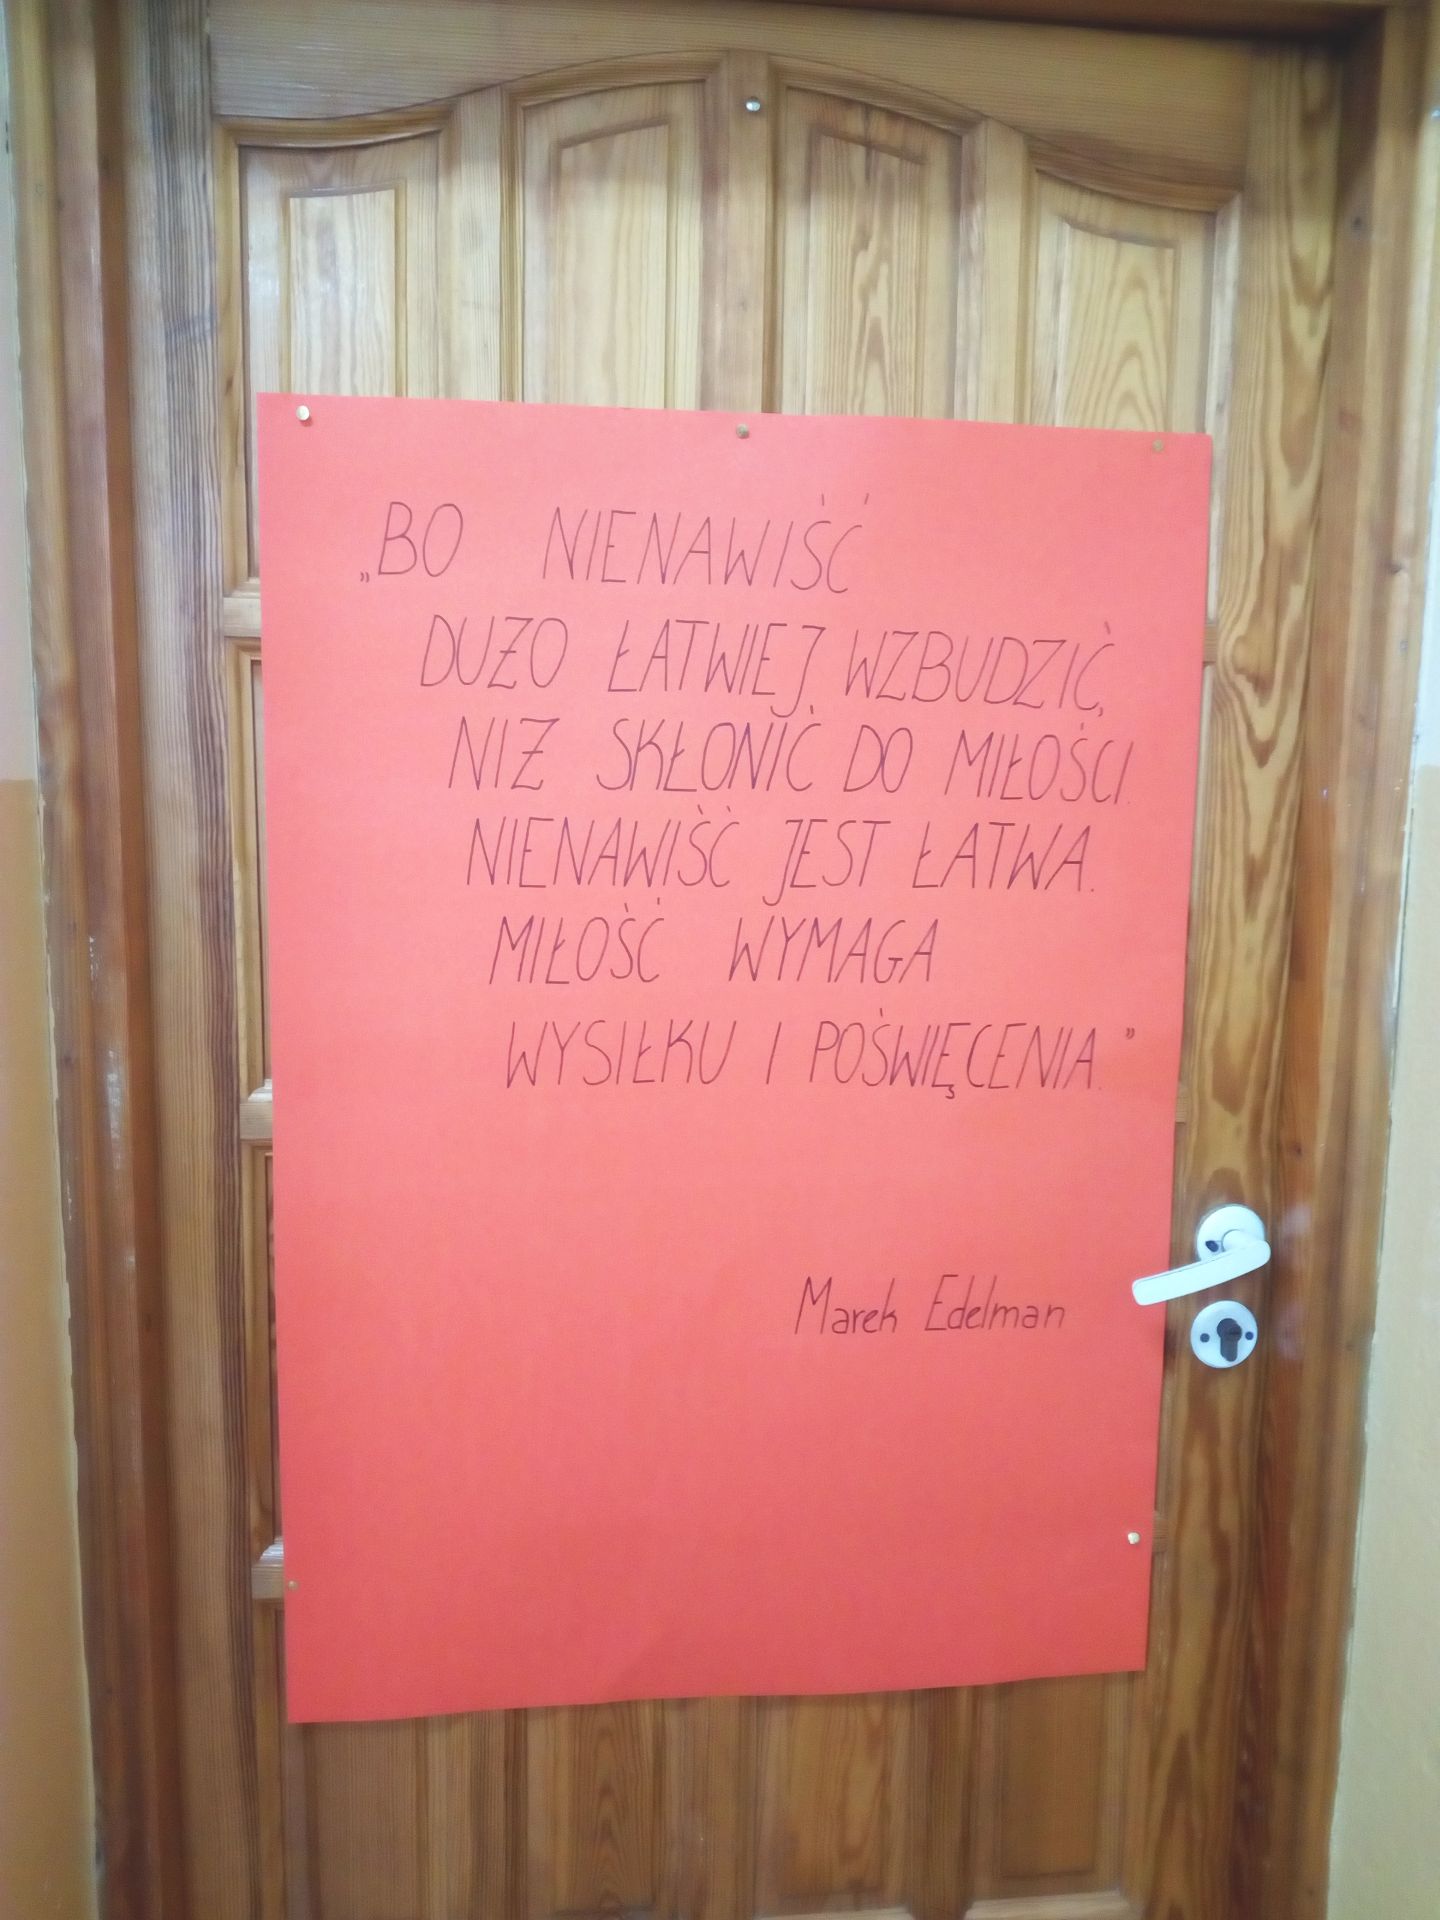 „BO NIENAWIŚĆ
DUŻO ŁATWIEJ WZBUDZIĆ,
NIŻ SKŁONIĆ DO MIŁOŚCI.
NIENAWIŚĆ JEST ŁATWA.
MIŁOŚĆ WYMAGA
WYSIŁKU I POŚWIĘCENIA.”
Marek Edelman